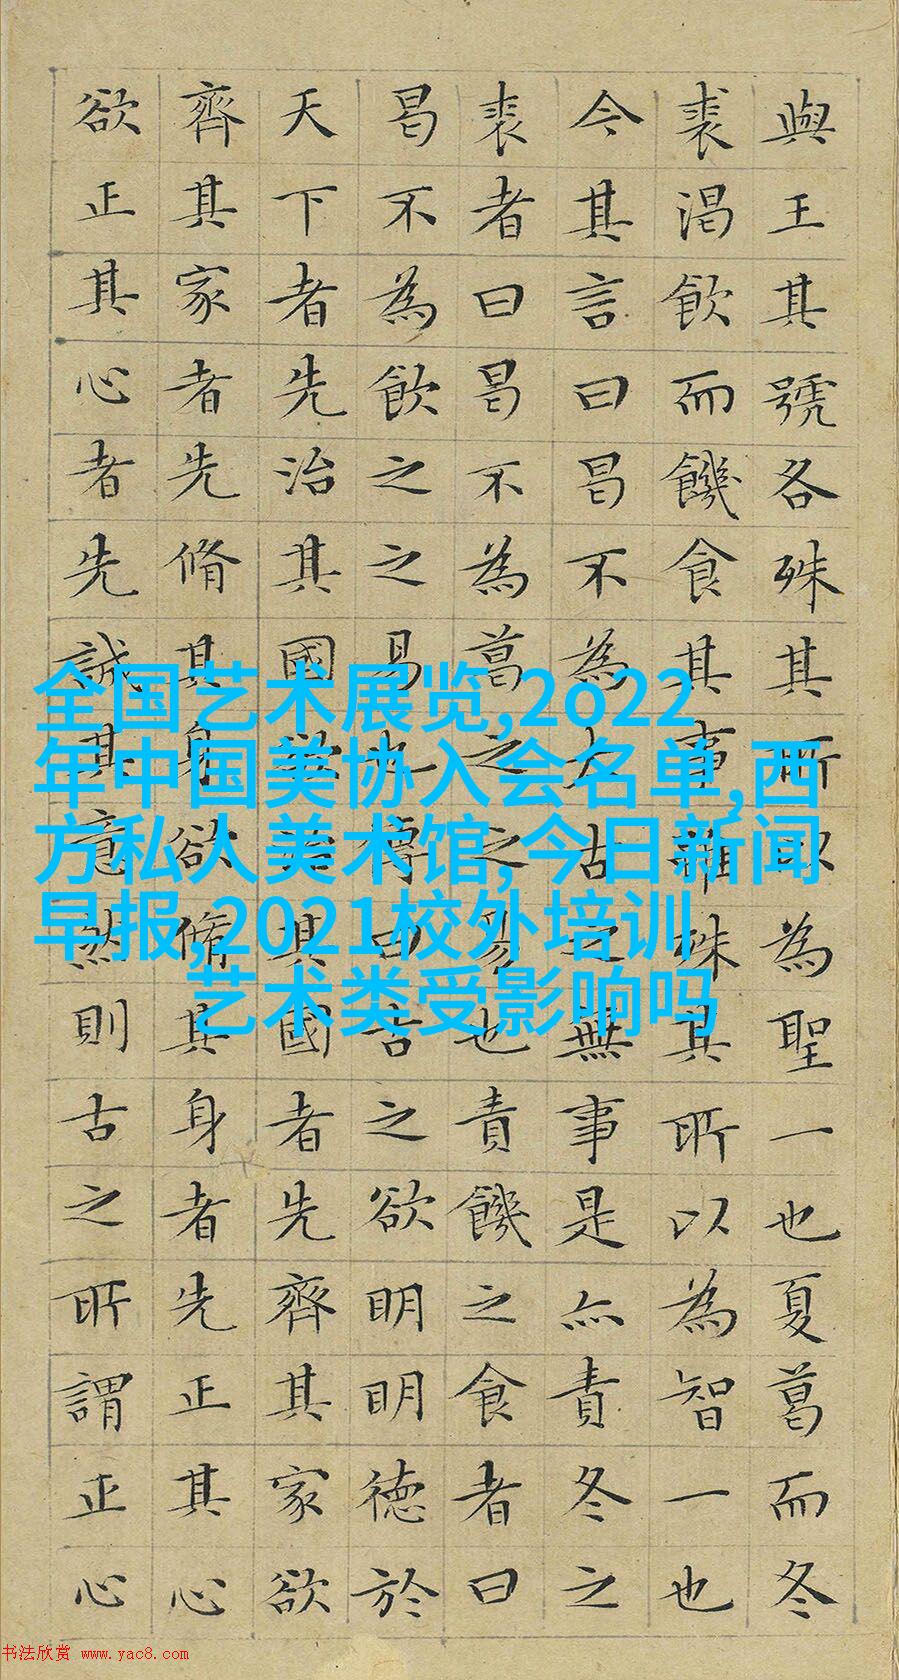 與王其號各殊其所以為聖一也夏葛而冬
裘渴飲而饑食其事雖殊其所以為智一也
今其言曰曷不為太古之無事是亦責冬之
裘者曰曷不為葛之之易也責饑之食者曰
曷不為飲之之易也傳曰古之欲明明德於
天下者先治其國欲治其國者先齊其家欲
齊其家者先脩其身欲脩其身者先正其心
欲正其心者先誠其意然則古之所謂正心
全国艺术展览,2o22
年中国美协入会名单,西
方私人美术馆,今日新闻
早报,2021校外培训
艺术类受影响吗
书法欣赏 www.yac8.com